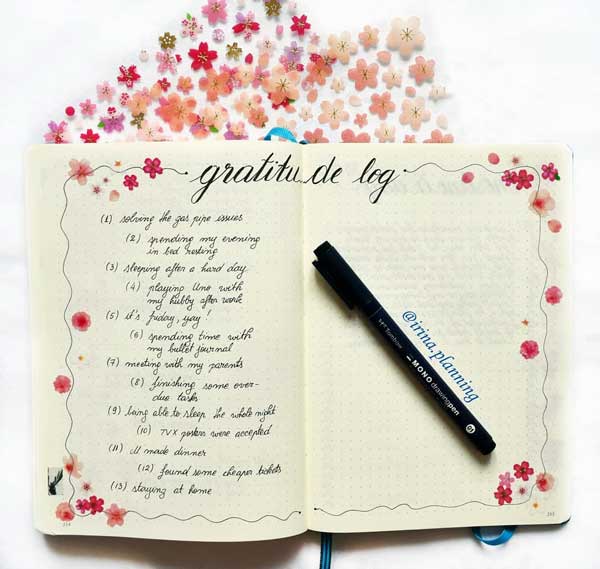 gratitude log
(1) solving the gas pipe issues
(2) spending my evening
in bed resting
(3) sleeping after a hard day
(4) playing Uno with
my hubby after work
(5) it's friday, yay!
(6) spending time with
my bullet journal
(7) meeting with my parents
(8) finishing some over-
due tasks
(9) being able to sleep the whole night
(10) TVX posters were accepted
(11) M made dinner
(12) found some cheaper tickets
(13) staying at home
Tombow
MONO drawing pen
@irina.planning